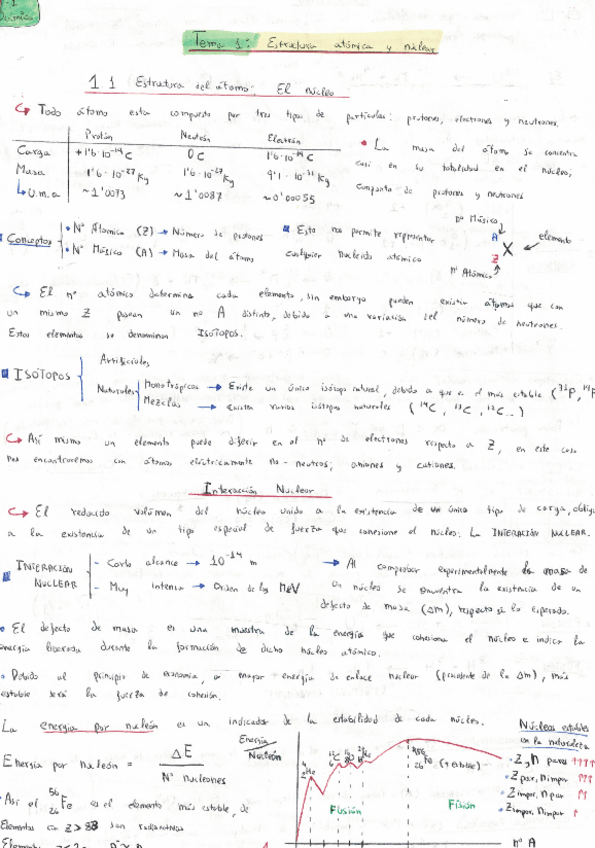 Tema 1: Estructura atómica y nuclear
1.1 Estructura del átomo: El núcleo
Todo átomo esta compuesto por tres tipos de partículas: protones, electrones y neutrones.
Protón Neutrón Electrón
Carga +1'6·10⁻¹⁹ C 0 C 1'6·10⁻¹⁹ C
Masa 1'6·10⁻²⁷ Kg 1'6·10⁻²⁷ Kg 9'1·10⁻³¹ Kg
U.m.a ~1'0073 ~1'0087 ~0'00055
La masa del átomo se concentra
casi en su totalidad en el núcleo,
compuesto de protones y neutrones
Conceptos
Nº Atómico (Z) → Número de protones
Nº Másico (A) → Masa del átomo
Esto nos permite representar
cualquier nucleido atómico
nº Másico
A
Z
X
elemento
nº Atómico
El nº atómico determina cada elemento, sin embargo pueden existir átomos que con
un mismo Z posean un no A distinto, debido a una variación del número de neutrones.
Estos elementos se denominan ISÓTOPOS.
ISÓTOPOS
Artificiales
Naturales
Monotrópicos → Existe un único isótopo natural, debido a que es el más estable (³¹P, ¹⁹F
Mezclas → Existen varios isótopos naturales (¹⁴C, ¹³C, ¹²C...)
Así mismo un elemento puede diferir en el nº de electrones respecto a Z, en este caso
nos encontraremos con átomos eléctricamente no-neutros; aniones y cationes.
Interacción Nuclear
El reducido volúmen del núcleo unido a la existencia de un único tipo de carga, obliga
a la existencia de un tipo especial de fuerza que cohesione el núcleo: La INTERACIÓN NUCLEAR.
INTERACIÓN NUCLEAR
- Corto alcance → 10⁻¹⁴ m
- Muy intensa → Orden de los MeV
→ Al comprobar experimentalmente la masa de
un núcleo se encuentra la existencia de un
defecto de masa (Δm), respecto a lo esperado.
El defecto de masa es una muestra de la energía que cohesiona el núcleo e indica la
energía liberada durante la formación de dicho núcleo atómico.
Debido al principio de economía, a mayor energía de enlace nuclear (procedente de la Δm), más
estable será la fuerza de cohesión.
La energía por nucleón es un indicador de la estabilidad de cada núcleo.
Energía por nucleón = ΔE
Nº nucleones
Así el ⁵⁶₂₆Fe es el elemento más estable, de
Elementos con Z > 83 son radiactivos
Energía
Nucleón
⁴He
¹²C
¹⁶O
⁵⁶₂₆Fe (+estable)
Fusión
Fisión
nº A
Núcleos estables
en la naturaleza
Z, n pares ↑↑↑↑
Z par, n impar ↑↑↑
Z impar, n par ↑↑
Z impar, n impar ↑